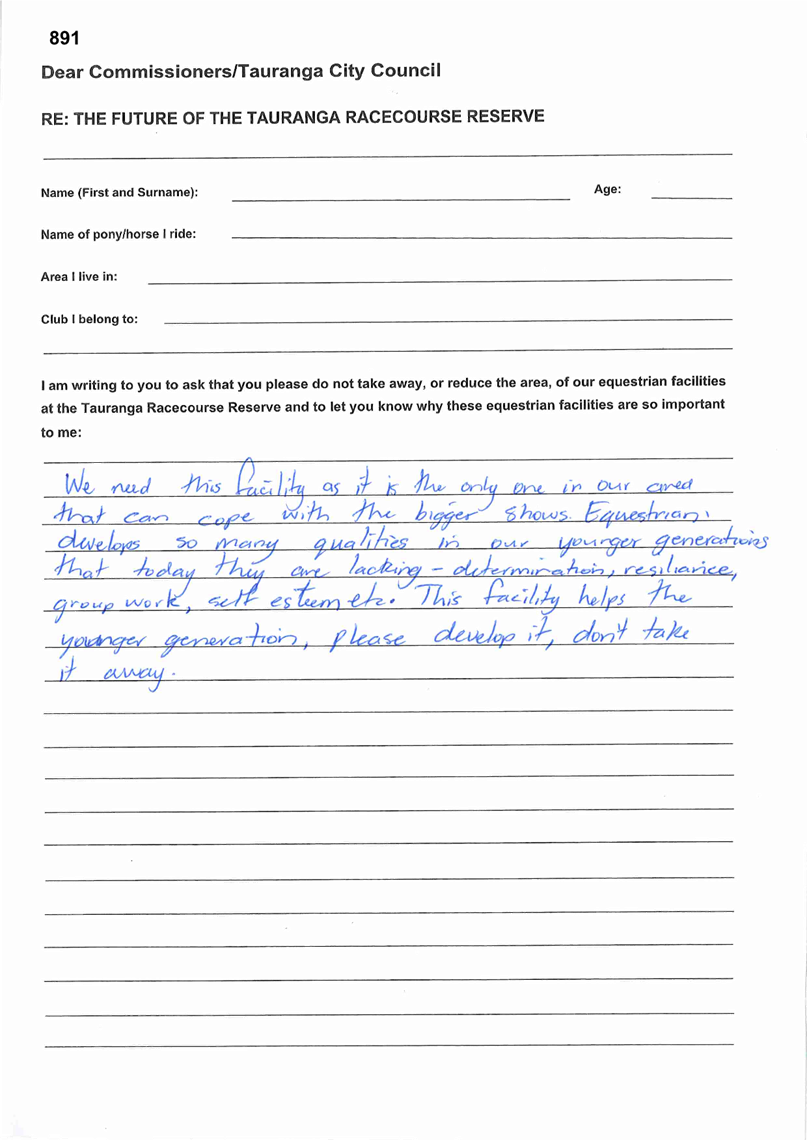 891
Dear Commissioners/Tauranga City Council
RE: THE FUTURE OF THE TAURANGA RACECOURSE RESERVE
Name (First and Surname):
Age:
Name of pony/horse I ride:
Area I live in:
Club I belong to:
I am writing to you to ask that you please do not take away, or reduce the area, of our equestrian facilities
at the Tauranga Racecourse Reserve and to let you know why these equestrian facilities are so important
to me:
We need this facility as it is the only one in our area
that can cope with the bigger shows. Equestrian
develops so many qualities in our younger generations
that today they are lacking - determination, resiliance,
group work, self esteem etc. This facility helps the
younger generation, please develop it, don't take
it away.